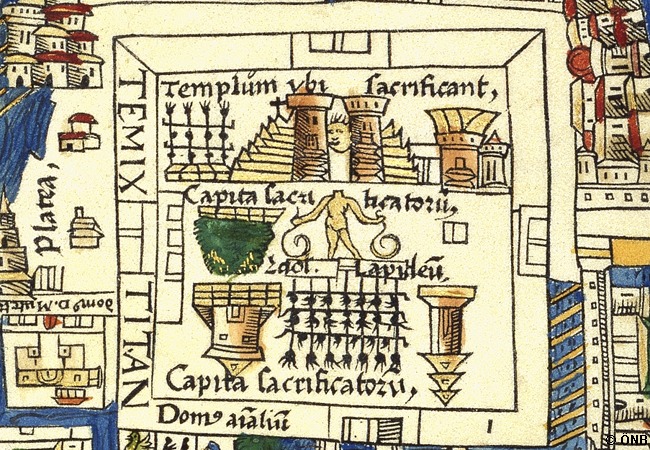 Templum vbi sacrificant,
TEMIX
TITAN
Platea,
Capita sacri ficatorū,
Idol. Lapideū,
Capita sacrificatorū,
Domꝰ aīaliū
domꝰ D.
© ONB